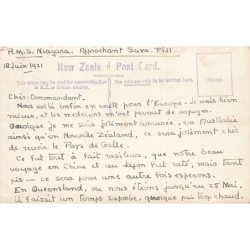 R.M.S. Niagara. Approchant Suva. FIJI.
18 Juin 1921
New Zealand Post Card.
The Address only to be written here.
Chèr Commandant.
Nous voilà enfin en route pour l'Europe. Je vais bien
mieux, et les medecins m'ont permit de voyager.
Quoique je me suis joliment amusée, en Australie
ainsi qu'en Nouvelle Zéaland, ce sera joliment chic
de revoir le Pays de Galle.
Ce fut tout à fait rasibus, que notre beau
voyage en Chine et au Japon fut raté, mais tant
pis — ce sera pour une autre fois esperons.
En Queensland, ou nous étions jusqu'au 25 Mai,
il faisait un temps superbe, quoique pas trop chaud.